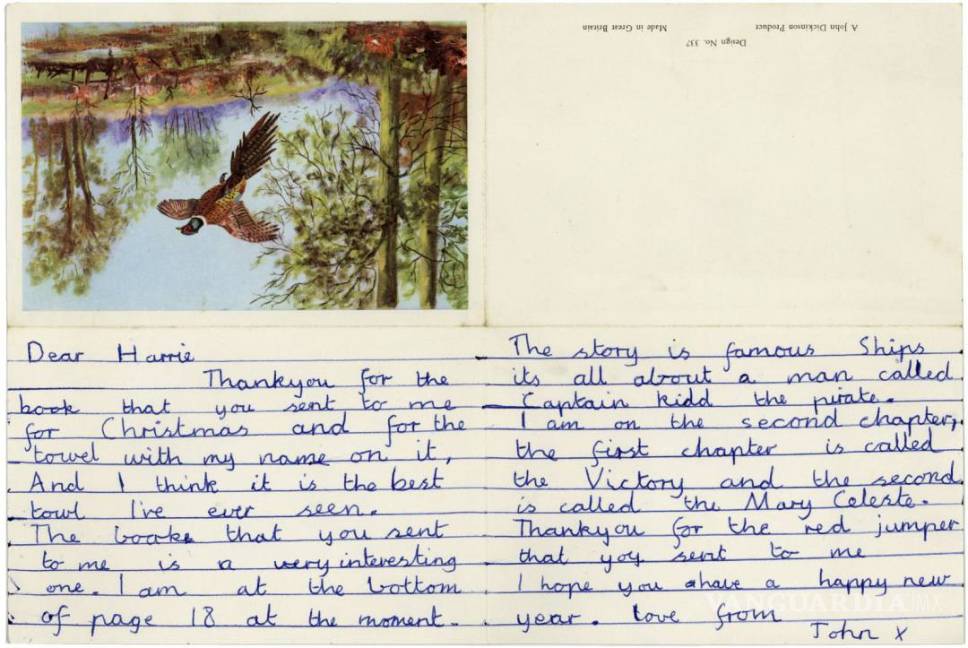 A John Dickinson Product
Made in Great Britain
Design No. 337
Dear Harrie
Thankyou for the
book that you sent to me
for Christmas and for the
towel with my name on it,
And I think it is the best
towl I've ever seen.
The booke that you sent
to me is a very interesting
one. I am at the bottom
of page 18 at the moment.
The story is famous Ships
its all about a man called
Captain Kidd the pirate.
I am on the second chapter,
the first chapter is called
the Victory and the second
is called the Mary Celeste.
Thankyou for the red jumper
that you sent to me
I hope you have a happy new
year. love from
John x
VANGUARDIA MX